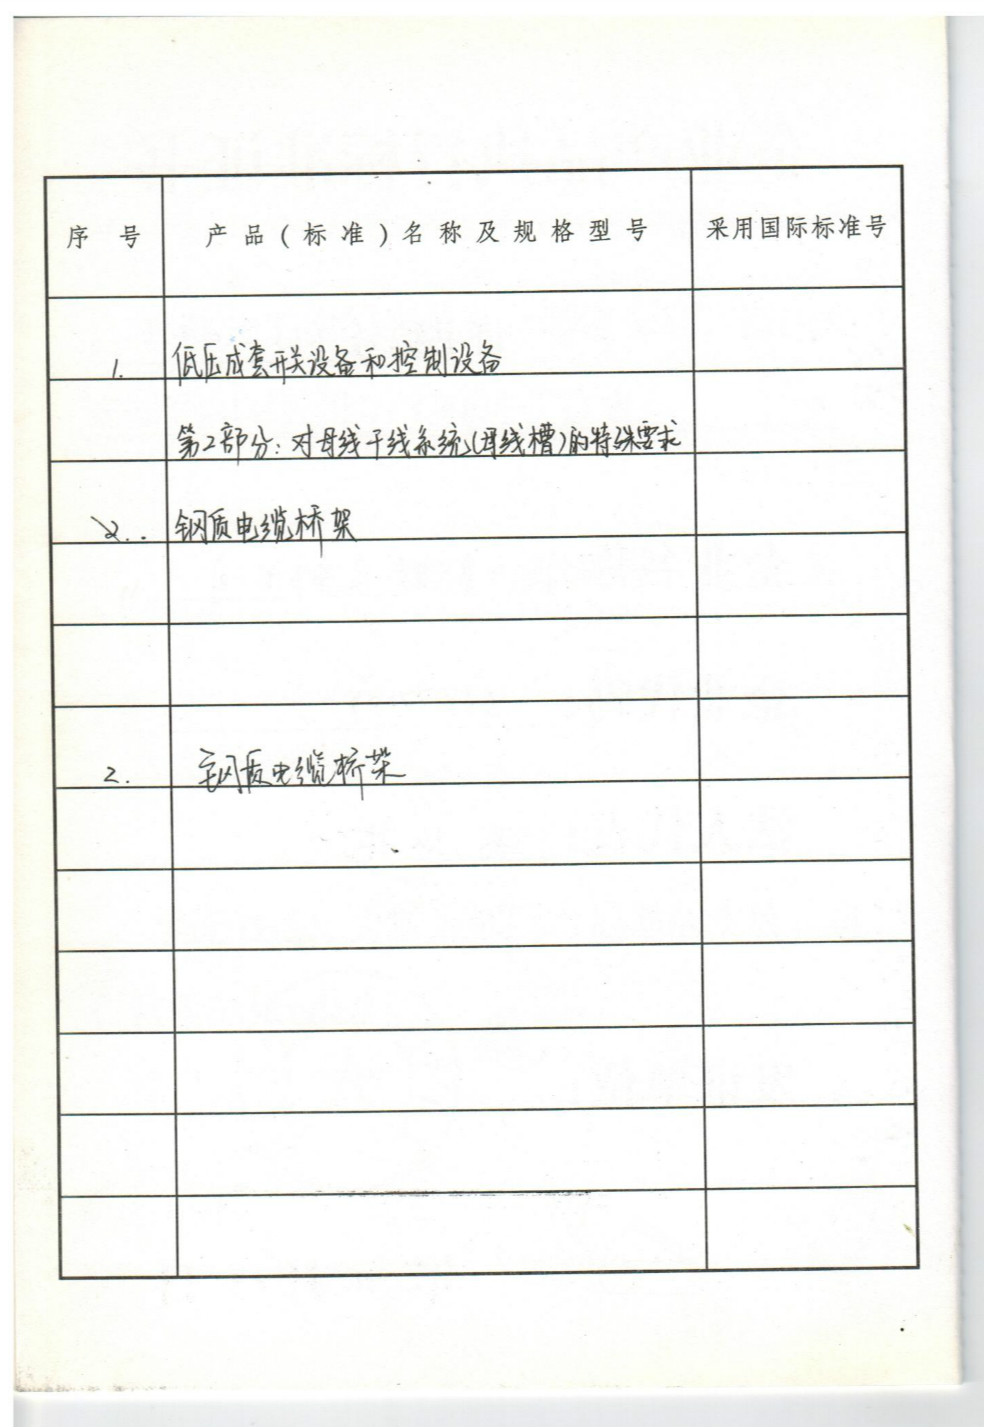 序 号 产品(标准)名称及规格型号 采用国际标准号
1. 低压成套开关设备和控制设备
第2部分:对母线干线系统(母线槽)的特殊要求
2.. 钢质电缆桥架
2. 钢质电缆桥架